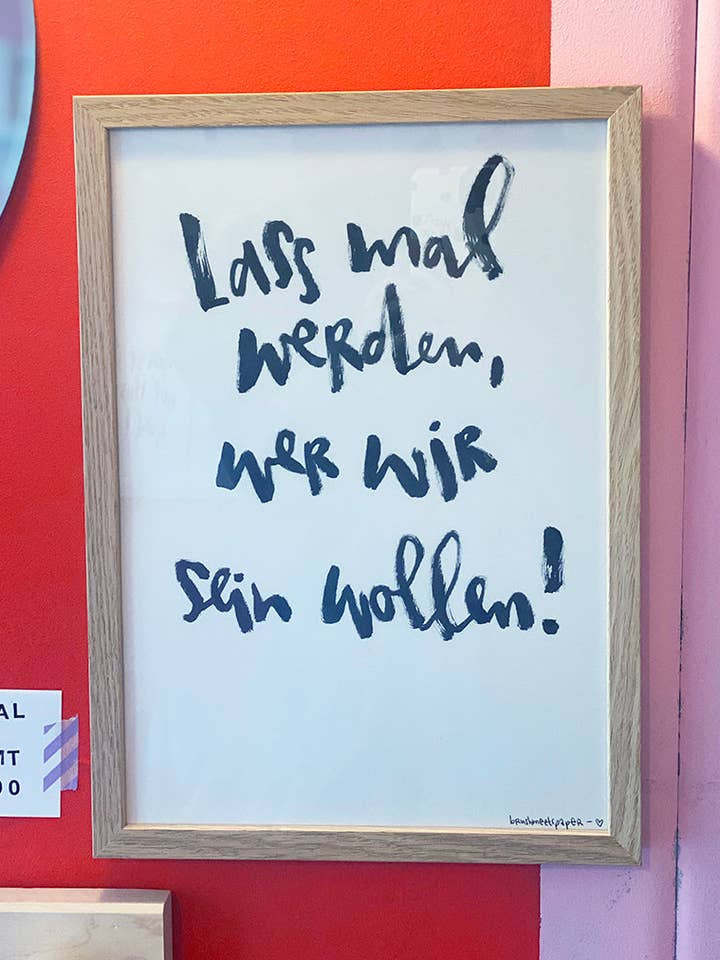 Lass mal
werden,
wer wir
sein wollen!
brushmeetspaper – ♡
AL
MT
00